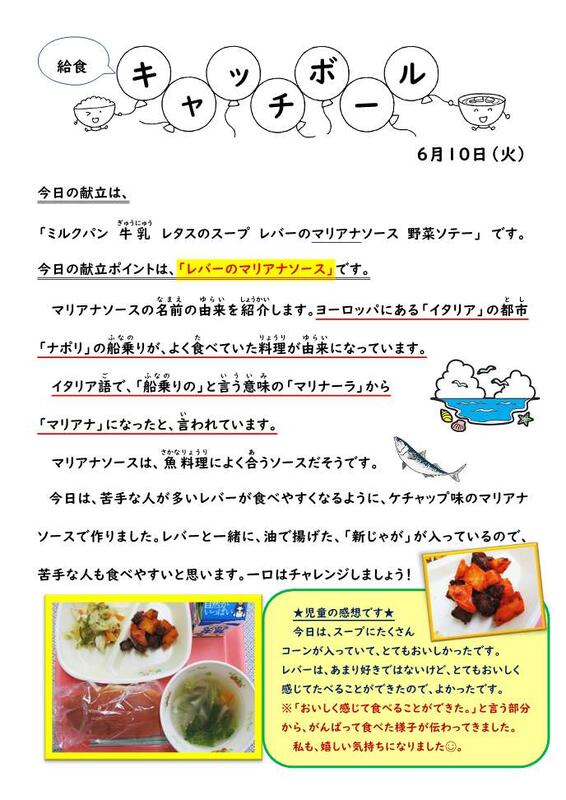 給食
キャッチボール
6月10日(火)
今日の献立は、
「ミルクパン 牛乳 レタスのスープ レバーのマリアナソース 野菜ソテー」 です。
今日の献立ポイントは、「レバーのマリアナソース」です。
マリアナソースの名前の由来を紹介します。ヨーロッパにある「イタリア」の都市
「ナポリ」の船乗りが、よく食べていた料理が由来になっています。
イタリア語で、「船乗りの」と言う意味の「マリナーラ」から
「マリアナ」になったと、言われています。
マリアナソースは、魚料理によく合うソースだそうです。
今日は、苦手な人が多いレバーが食べやすくなるように、ケチャップ味のマリアナ
ソースで作りました。レバーと一緒に、油で揚げた、「新じゃが」が入っているので、
苦手な人も食べやすいと思います。一口はチャレンジしましょう!
★児童の感想です★
今日は、スープにたくさん
コーンが入っていて、とてもおいしかったです。
レバーは、あまり好きではないけど、とてもおいしく
感じてたべることができたので、よかったです。
※「おいしく感じて食べることができた。」と言う部分
から、がんばって食べた様子が伝わってきました。
私も、嬉しい気持ちになりました☺。